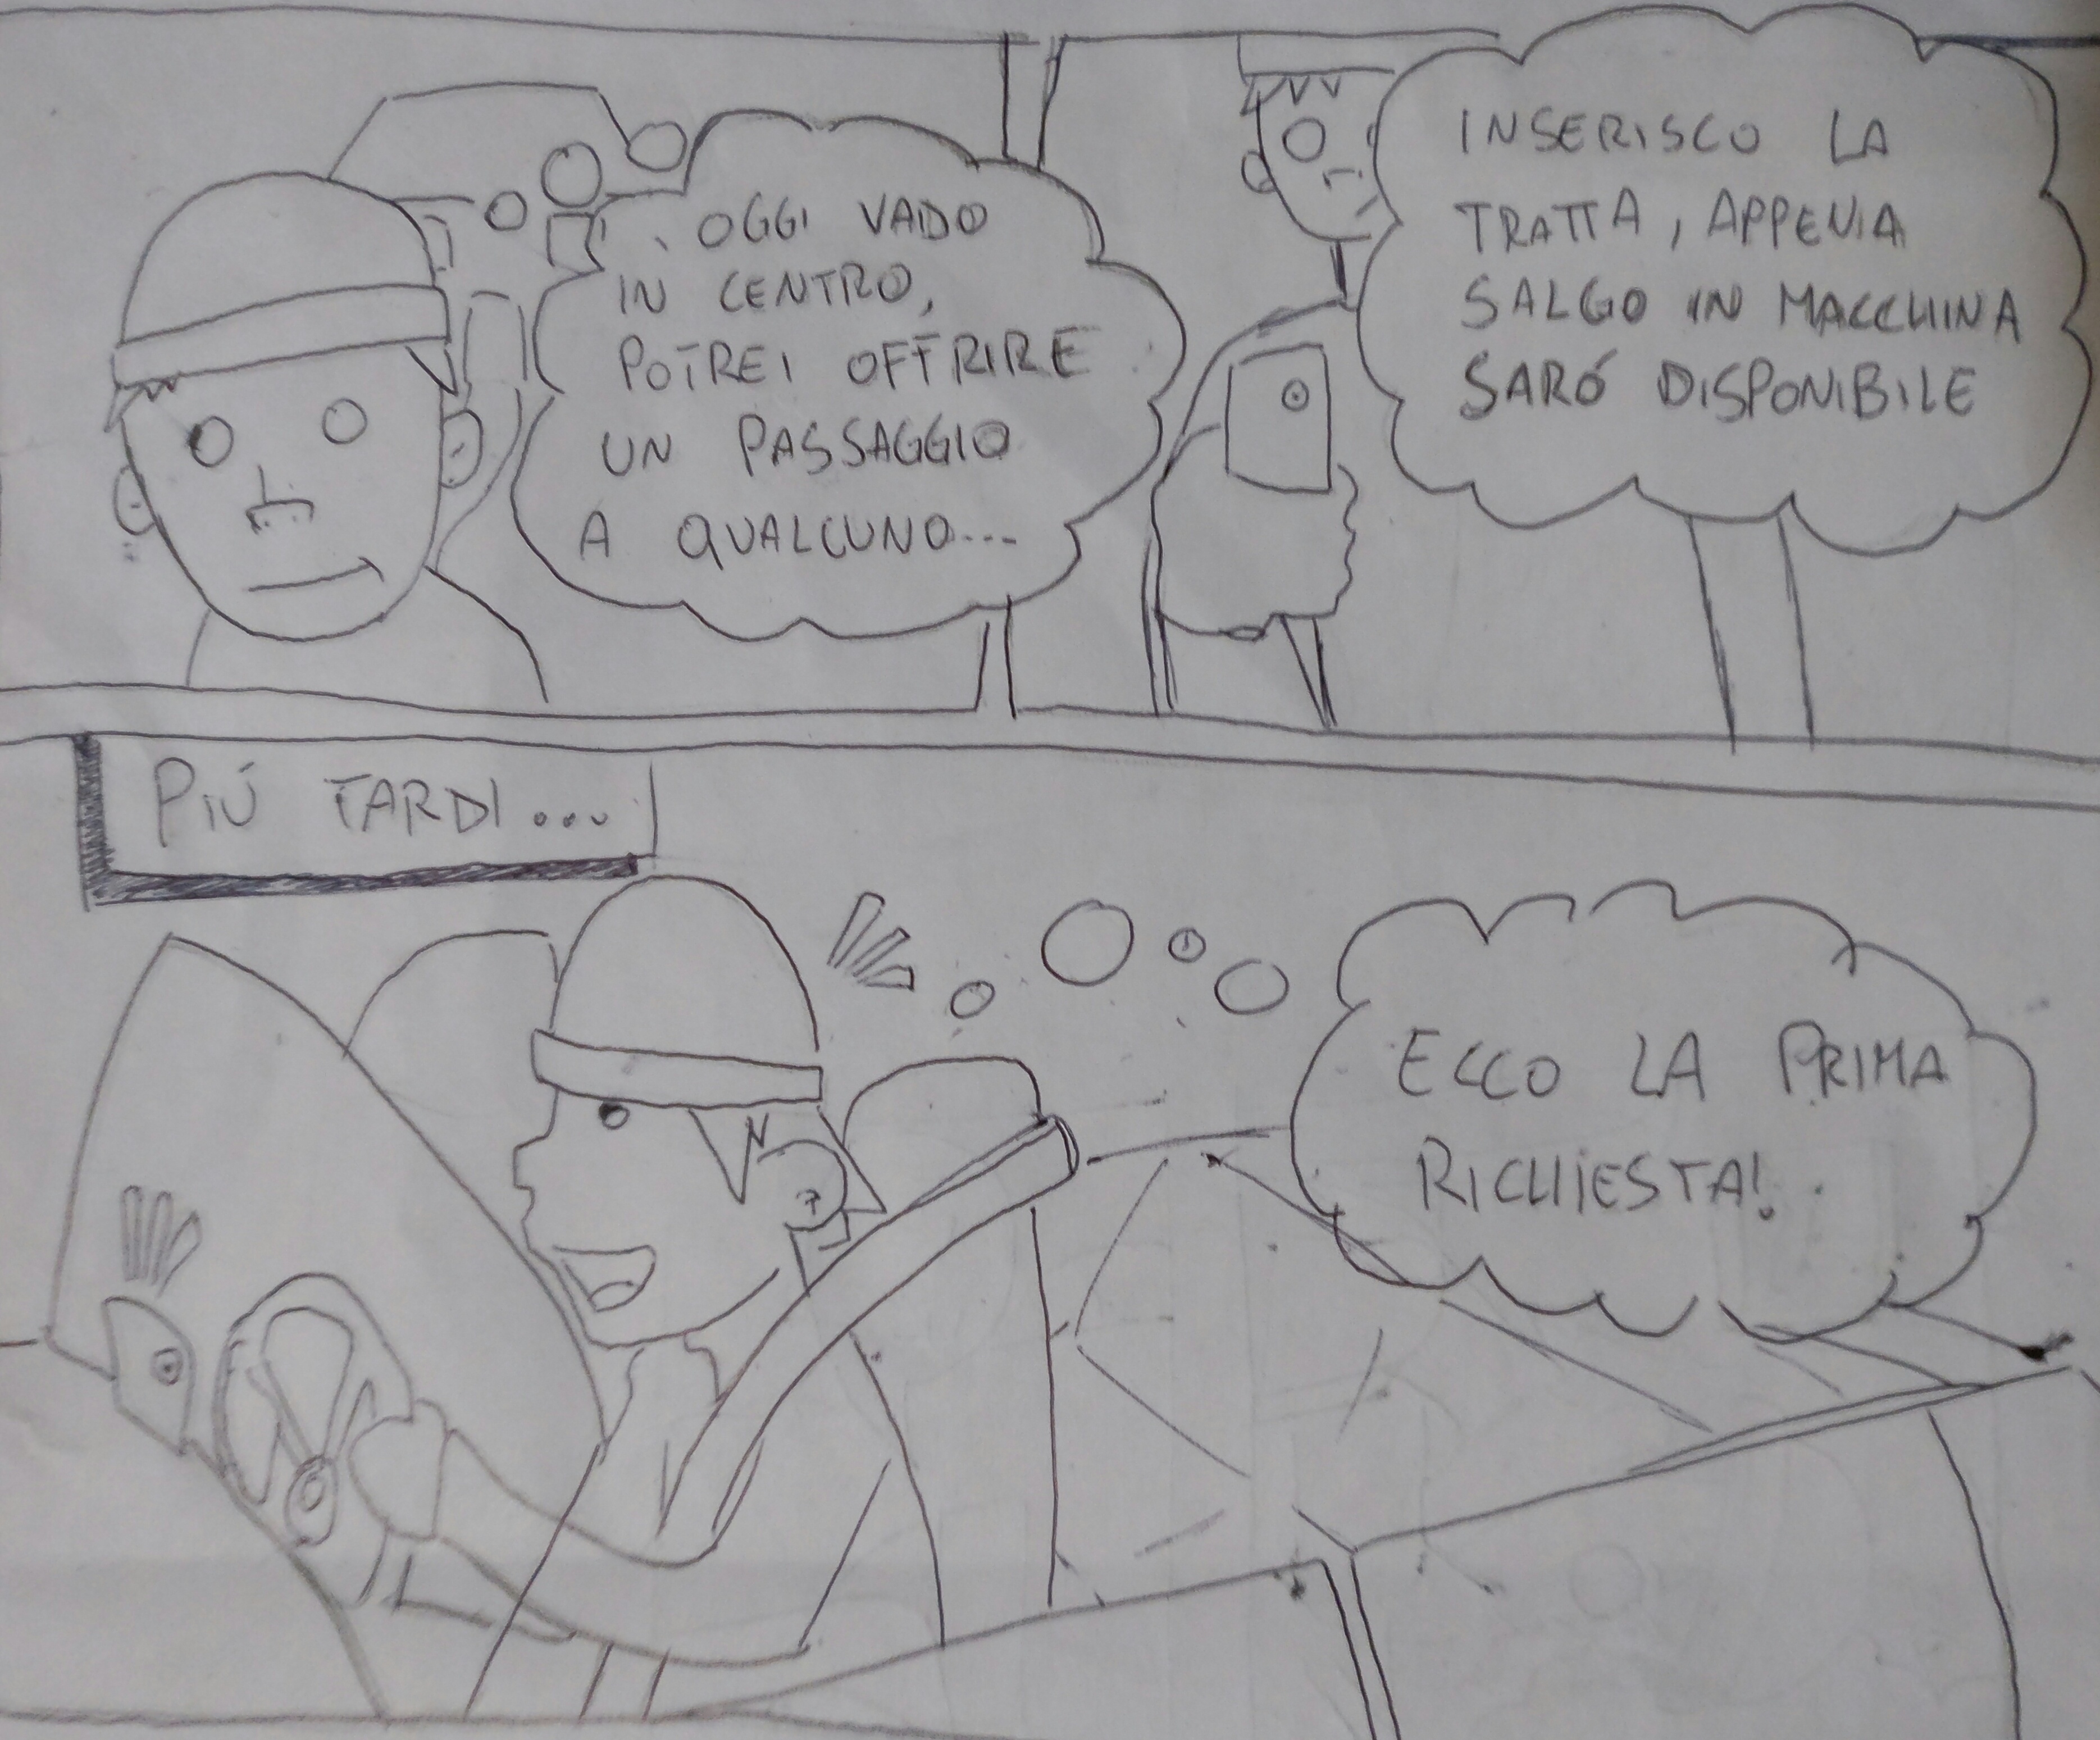 OGGI VADO
IN CENTRO,
POTREI OFFRIRE
UN PASSAGGIO
A QUALCUNO...
INSERISCO LA
TRATTA, APPENA
SALGO IN MACCHINA
SARÓ DISPONIBILE
PIÚ TARDI...
ECCO LA PRIMA
RICHIESTA!